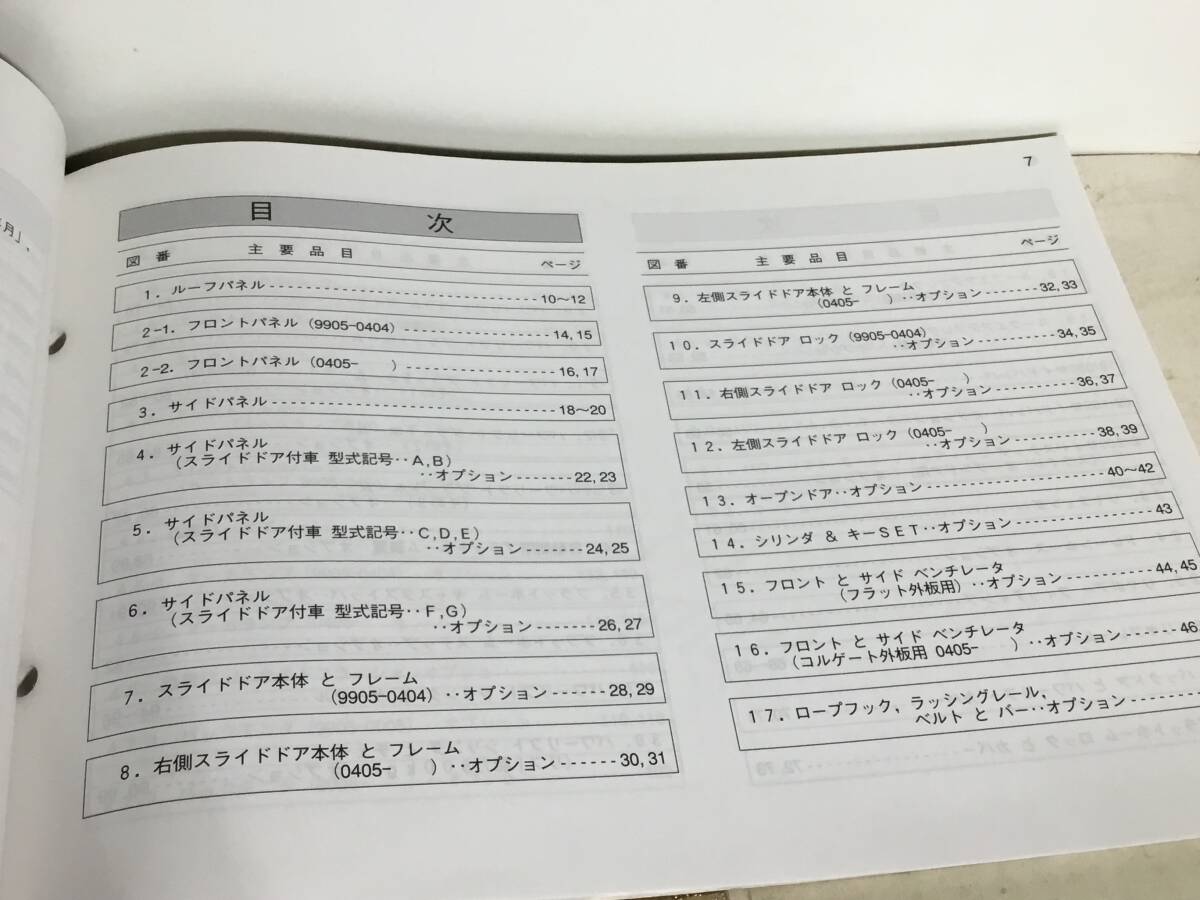 7
目 次
図番 主要品目 ページ
1. ルーフパネル 10~12
2-1. フロントパネル (9905-0404) 14, 15
2-2. フロントパネル (0405- ) 16, 17
3. サイドパネル 18~20
4. サイドパネル
(スライドドア付車 型式記号‥A, B)
‥オプション 22, 23
5. サイドパネル
(スライドドア付車 型式記号‥C, D, E)
‥オプション 24, 25
6. サイドパネル
(スライドドア付車 型式記号‥F, G)
‥オプション 26, 27
7. スライドドア本体 と フレーム
(9905-0404) ‥オプション 28, 29
8. 右側スライドドア本体 と フレーム
(0405- ) ‥オプション 30, 31
図番 主要品目 ページ
9. 左側スライドドア本体 と フレーム
(0405- ) ‥オプション 32, 33
10. スライドドア ロック (9905-0404)
‥オプション 34, 35
11. 右側スライドドア ロック (0405- )
‥オプション 36, 37
12. 左側スライドドア ロック (0405- )
‥オプション 38, 39
13. オープンドア‥オプション 40~42
14. シリンダ & キーSET‥オプション 43
15. フロント と サイド ベンチレータ
(フラット外板用) ‥オプション 44, 45
16. フロント と サイド ベンチレータ
(コルゲート外板用 0405- ) ‥オプション 46,
17. ロープフック, ラッシングレール,
ベルト と バー‥オプション